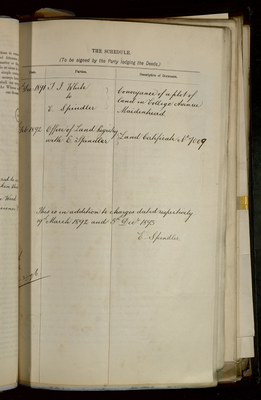 THE SCHEDULE.
(To be signed by the Party lodging the Deeds.)
Date. Parties. Description of Document.
1891 J. J. White Conveyance of a plot of
to land in College Avenue
E. Spindler Maidenhead
1892 Office of Land Registry Land Certificate No 7009
with E. Spindler
This is in addition to charges dated respectively
of March 1892 and 5th Decr 1893
E. Spindler